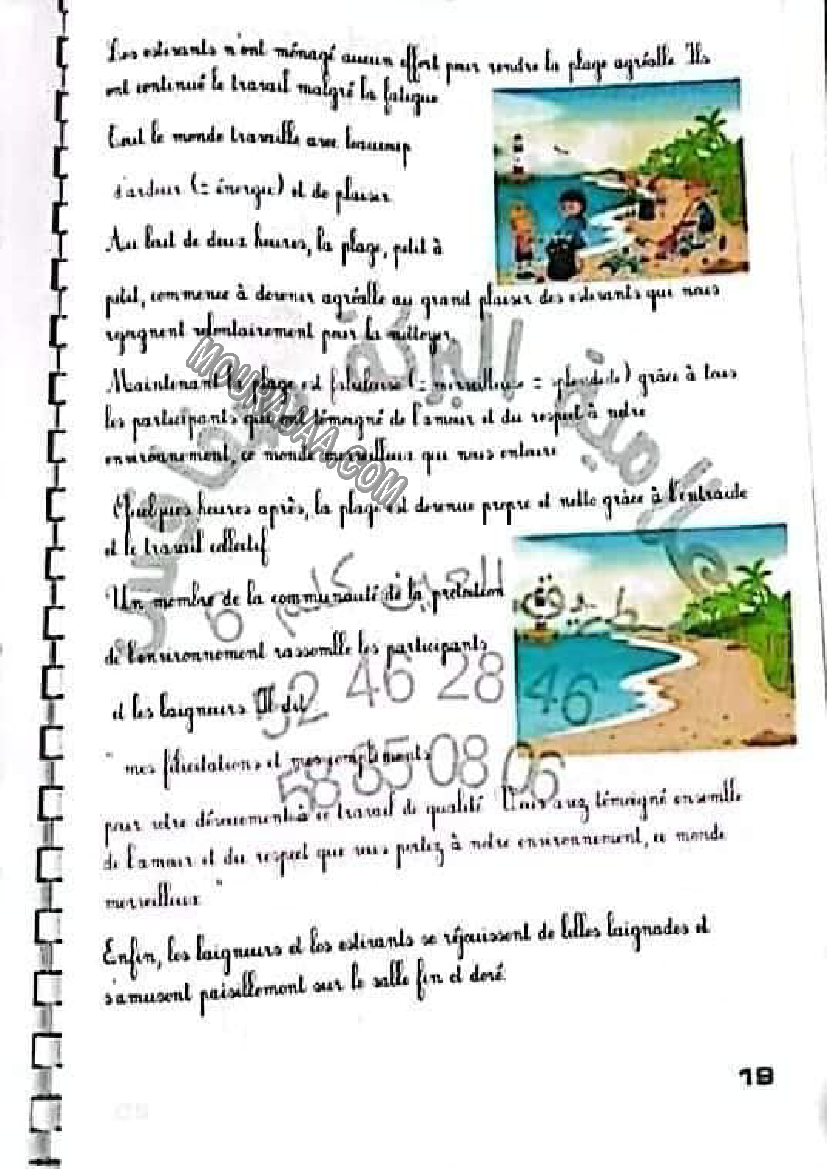 Les estivants n'ont ménagé aucun effort pour rendre la plage agréable. Ils
ont continué le travail malgré la fatigue
Tout le monde travaille avec beaucoup
d'ardeur (= énergie) et de plaisir.
Au bout de deux heures, la plage, petit à
petit, commence à devenir agréable au grand plaisir des estivants qui nous
rejoignent volontairement pour la nettoyer.
Maintenant la plage est fabuleuse (= merveilleuse = splendide) grâce à tous
les participants qui ont témoigné de l'amour et du respect à notre
environnement, ce monde merveilleux qui nous entoure
Quelques heures après, la plage est devenue propre et nette grâce à l'entraide
et le travail collectif
Un membre de la communauté de la protection
de l'environnement rassemble les participants
et les baigneurs. Il dit
" mes félicitations et mes compliments
pour votre dévouement à ce travail de qualité. Vous avez témoigné ensemble
de l'amour et du respect que vous portez à notre environnement, ce monde
merveilleux "
Enfin, les baigneurs et les estivants se réjouissent de belles baignades et
s'amusent paisiblement sur le sable fin et doré.
19
MOURAJAA.COM
طريق العين كلم 6
52 46 28 46
58 85 08 06